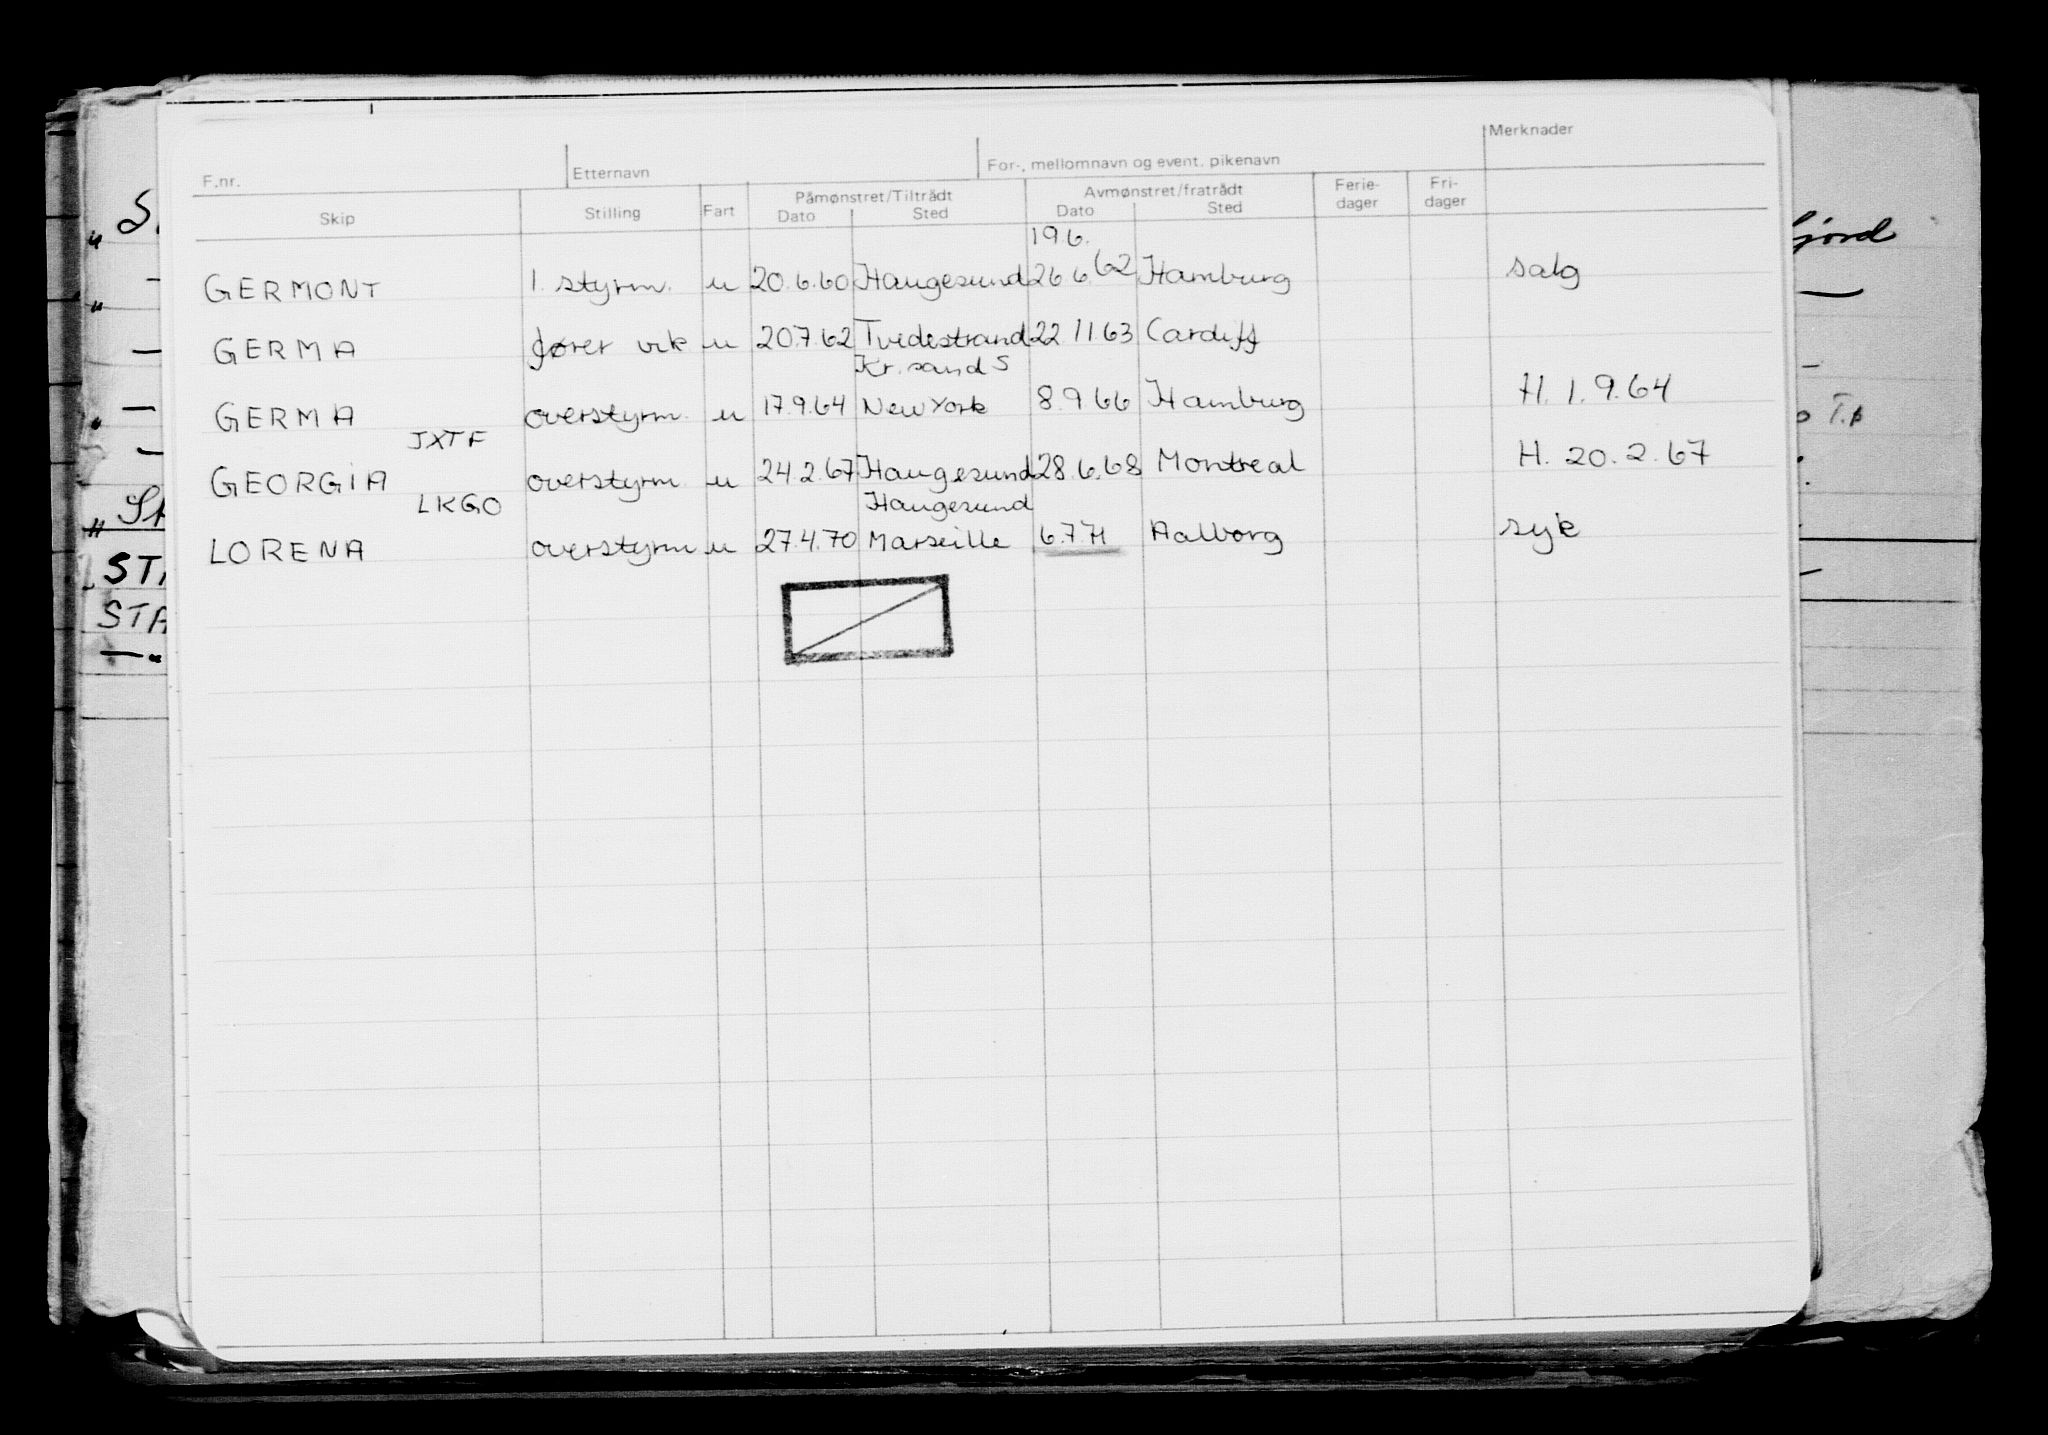 F.nr. Etternavn For-, mellomnavn og event. pikenavn Merknader
Skip Stilling Fart Påmønstret/Tiltrådt Avmønstret/fratrådt Ferie- Fri-
Dato Sted Dato Sted dager dager
19.6.
GERMONT 1. styrm. u 20.6.60 Haugesund 26.6.62 Hamburg salg
GERMA fører vik u 20.7.62 Tvedestrand 22.11.63 Cardiff
Kr.sand S
GERMA overstyrm. u 17.9.64 New York 8.9.66 Hamburg H. 1.9.64
JXTF
GEORGIA overstyrm. u 24.2.67 Haugesund 28.6.68 Montreal H. 20.2.67
LKGO Haugesund
LORENA overstyrm u 27.4.70 Marseille 6.7.71 Aalborg syk
fjord
STA